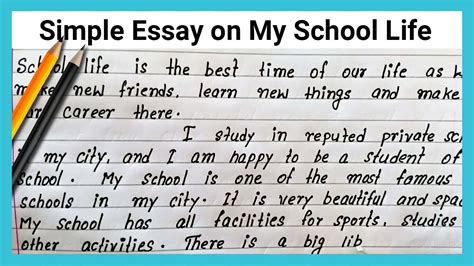 Simple Essay on My School Life
School life is the best time of our life as w
make new friends, learn new things and make
our career there.
I study in reputed private sc
in my city, and I am happy to be a student of
school. My school is one of the most famous
schools in my city. It is very beautiful and spac
My School has all facilities for sports, studies
other activities. There is a big lib